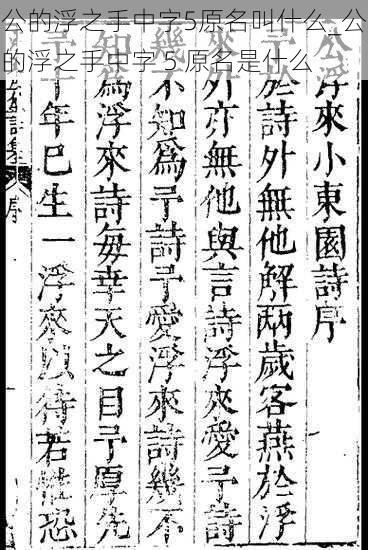 公的浮之手中字5原名叫什么_公
的浮之手中字 5 原名是什么
公浮來小東園詩序
予於詩外無他解兩歲客燕於浮
來外亦無他與言詩浮來愛予詩
幾不知爲予詩予愛浮來詩幾不
知爲浮來詩每幸天之目予厚先
十年巳生一浮來以待若惟恐
詩集
序